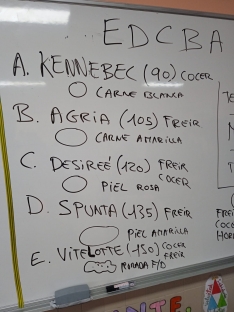 ... EDCBA
A. KENNEBEC (90) COCER
CARNE BLANCA
B. AGRIA (105) FREIR
CARNE AMARILLA
C. DESIREÉ (120) FREIR
COCER
PIEL ROSA
D. SPUNTA (135) FREIR
PIEL AMARILLA
E. VITELOTTE (150) COCER
FREIR
MORADA F/D
FREI
COCE
HOR